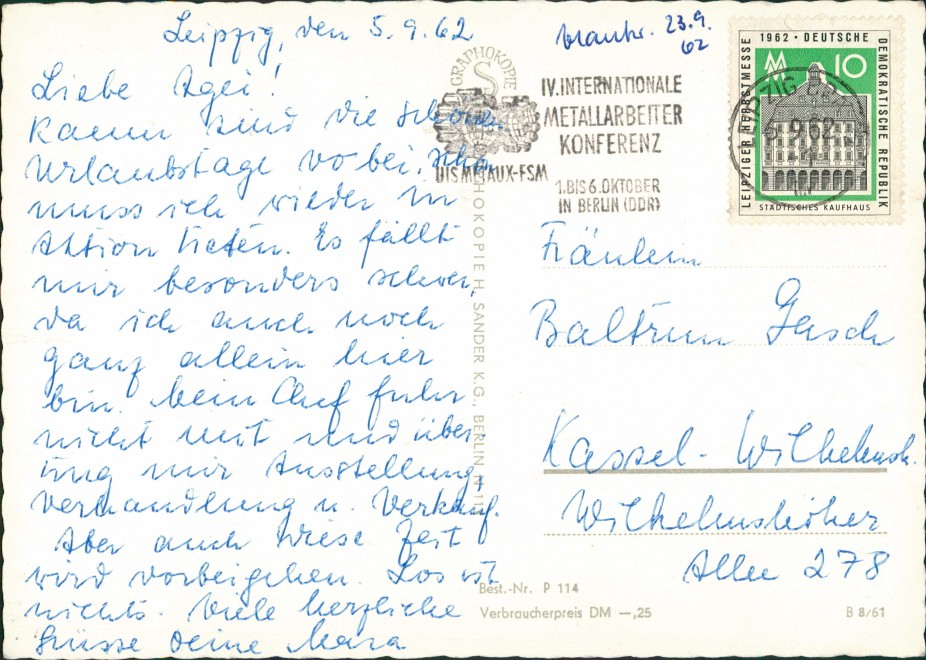 Leipzig, den 5.9.62
Liebe Agei!
Kaum sind die schönen
Urlaubstage vorbei, schon
muss ich wieder in
Aktion treten. Es fällt
mir besonders schwer,
da ich auch noch
ganz allein hier
bin. Mein Chef fuhr
nicht mit und über
ging mir Ausstellung,
Verhandlung u. Verkauf.
Aber auch diese Zeit
wird vorbeigehen. Los ist
nichts. Viele herzliche
Grüsse Deine Mara
23.9.
62
GRAPHOKOPIE
S
GRAPHOKOPIE H. SANDER K.G., BERLIN
IV. INTERNATIONALE
METALLARBEITER
KONFERENZ
UIS METAUX-FSM
1. BIS 6. OKTOBER
IN BERLIN (DDR)
LEIPZIG
9.62
LEIPZIGER HERBSTMESSE
1962 · DEUTSCHE
DEMOKRATISCHE REPUBLIK
MM 10
STÄDTISCHES KAUFHAUS
Fräulein
Baltrun Gasch
Kassel-Wilhelmsh.
Wilhelmshöher
Allee 278
Best.-Nr. P 114
Verbraucherpreis DM —,25
B 8/61